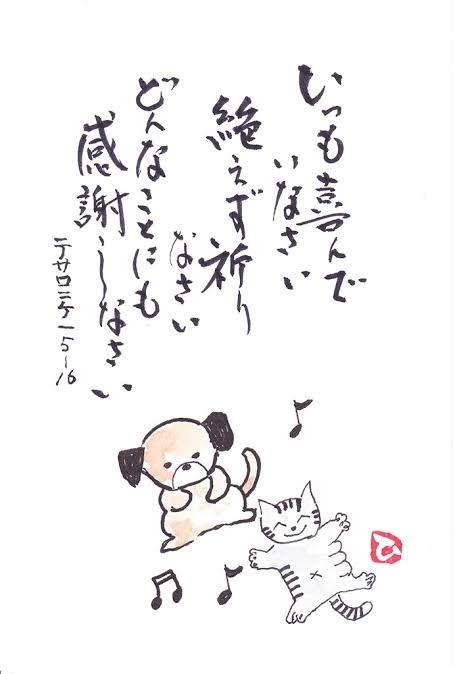 いつも喜んで
いなさい
絶えず祈り
なさい
どんなことにも
感謝しなさい
テサロニケ一5-16
ひ